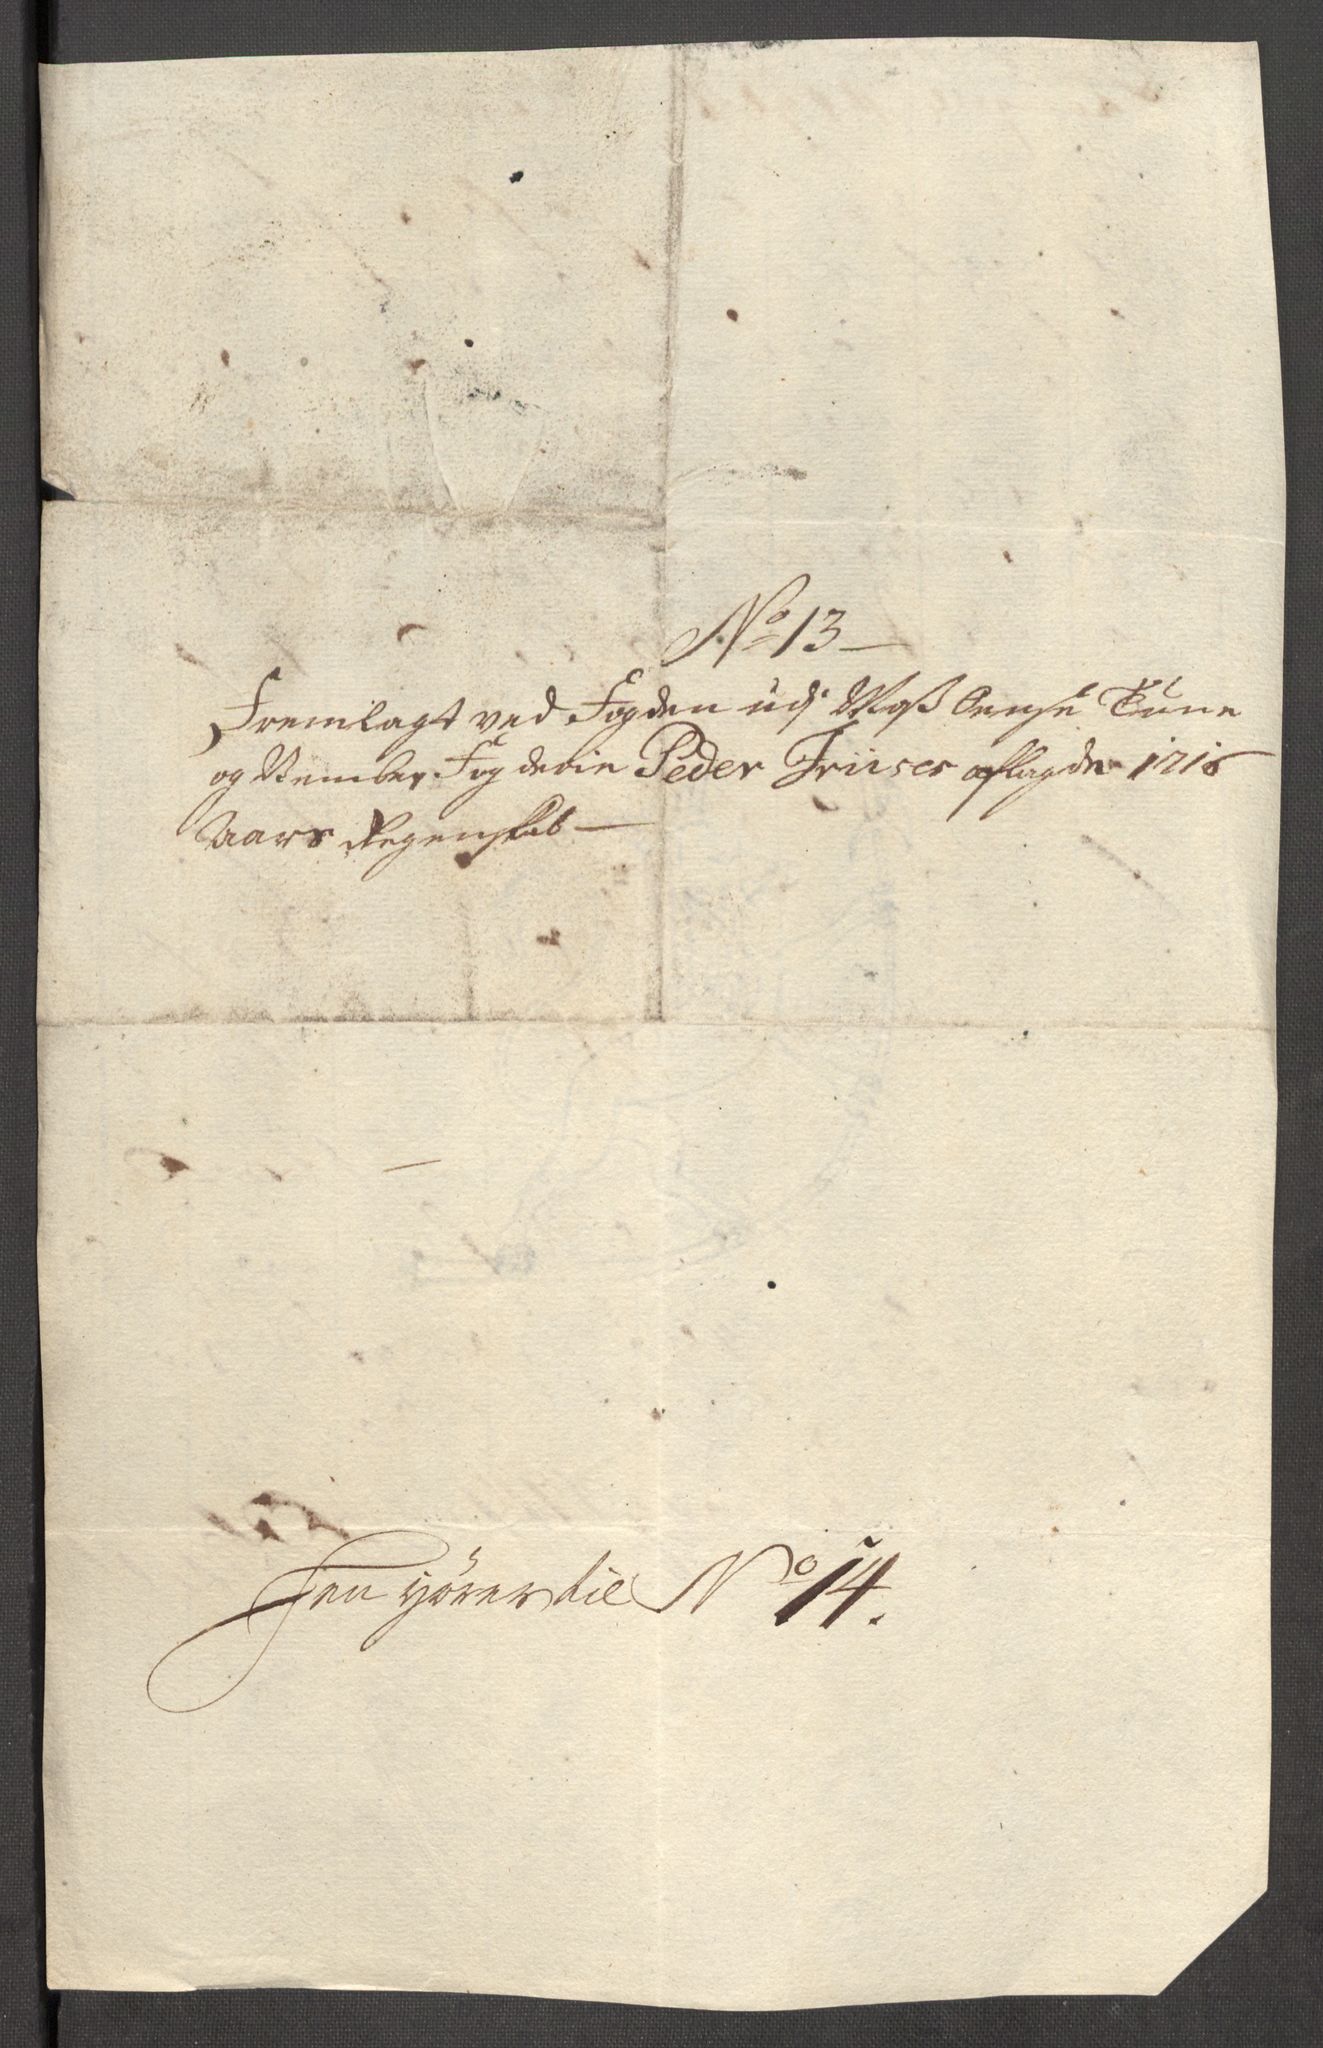 No 13
Fremlagt ved Fogden udj Moss Aensé Tune
og Vembøe Fogderie Peder Friises aflagde 1716
Aars Regenskab
hører til No 14.